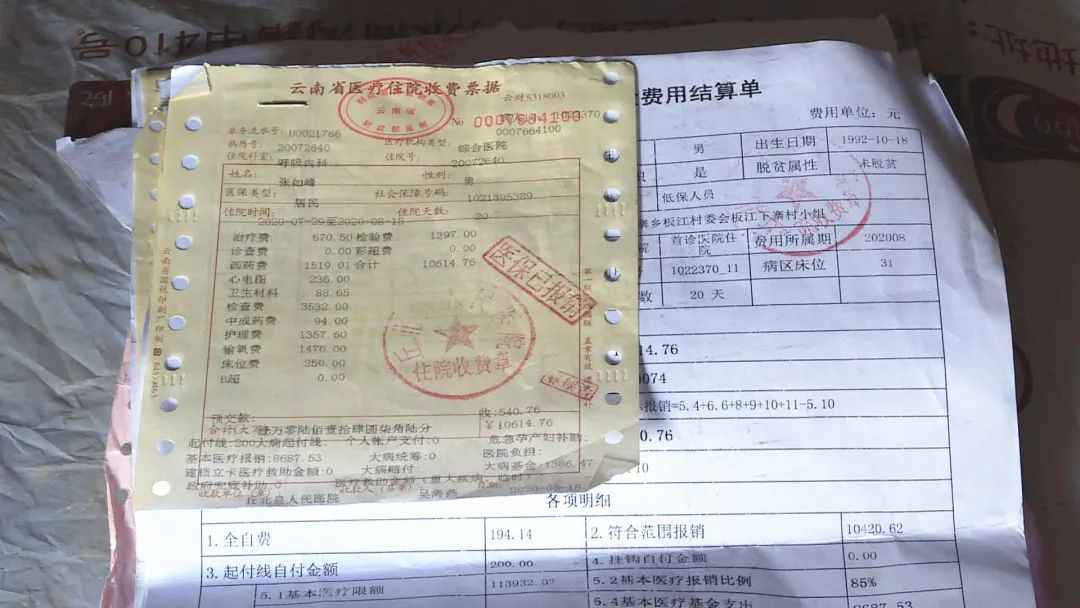 地址:
号410中
云南省医疗住院收费票据
云财5318003
云南省
财政部监制
No 0007664100
0007664100
业务流水号: H0021766
医疗机构类型: 综合医院
病历号: 20072640
住院号: 20072640
住院科室: 呼吸内科
姓名: 张如峰
性别: 男
医保类型: 居民
社会保障号码: 1021305389
住院时间: 2020-07-29至2020-08-18
住院天数: 20
治疗费 670.50 检验费 1397.00
诊查费 0.00 彩超费 0.00
西药费 1519.01 合计 10614.76
心电图 236.00
卫生材料 88.65
检查费 3532.00
中成药费 94.00
护理费 1357.60
输氧费 1470.00
床位费 250.00
B超 0.00
医保已报销
住院收费章
云南省国税印刷厂印制
预交款:
收:540.76
合计(大写)
万零陆佰壹拾肆圆柒角陆分
¥10614.76
起付线:200大病起付线: 个人帐户支付:0 危急孕产妇补助:
基本医疗报销:8687.53 大病统筹:0 医院负担:
建档立卡医疗救助金额:0 大病赔付: 大病基金:1386.47
政府兜底补助:0 医疗救助金额(重大疾病、临时)
收款单位(章) 丘北县人民医院 收款人(签章) 吴海燕 日期
费用结算单
费用单位: 元
370
男 出生日期 1992-10-18
是 脱贫属性 未脱贫
低保人员
寨乡板江村委会板江下寨村小组
首诊医院住院 费用所属期 202008
1022370_11 病区床位 31
数 20 天
住院收费章
4.76
074
报销=5.4+6.6+8+9+10+11-5.10
0.76
10
各项明细
1.全自费 194.14 2.符合范围报销 10420.62
3.起付线自付金额 200.00 4.挂钩自付金额 0.00
5.1基本医疗限额 113932.07 5.2基本医疗报销比例 85%
5.4基本医疗基金支出 8687.53